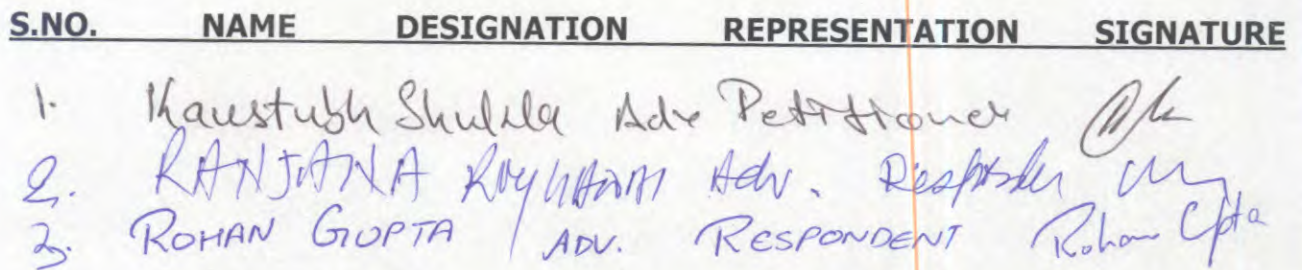 S.NO. NAME DESIGNATION REPRESENTATION SIGNATURE
1. Kaustubh Shukla Adv Petitioner
2. RANJANA Adv.
3. ROHAN GUPTA ADV. RESPONDENT Rohan Gupta